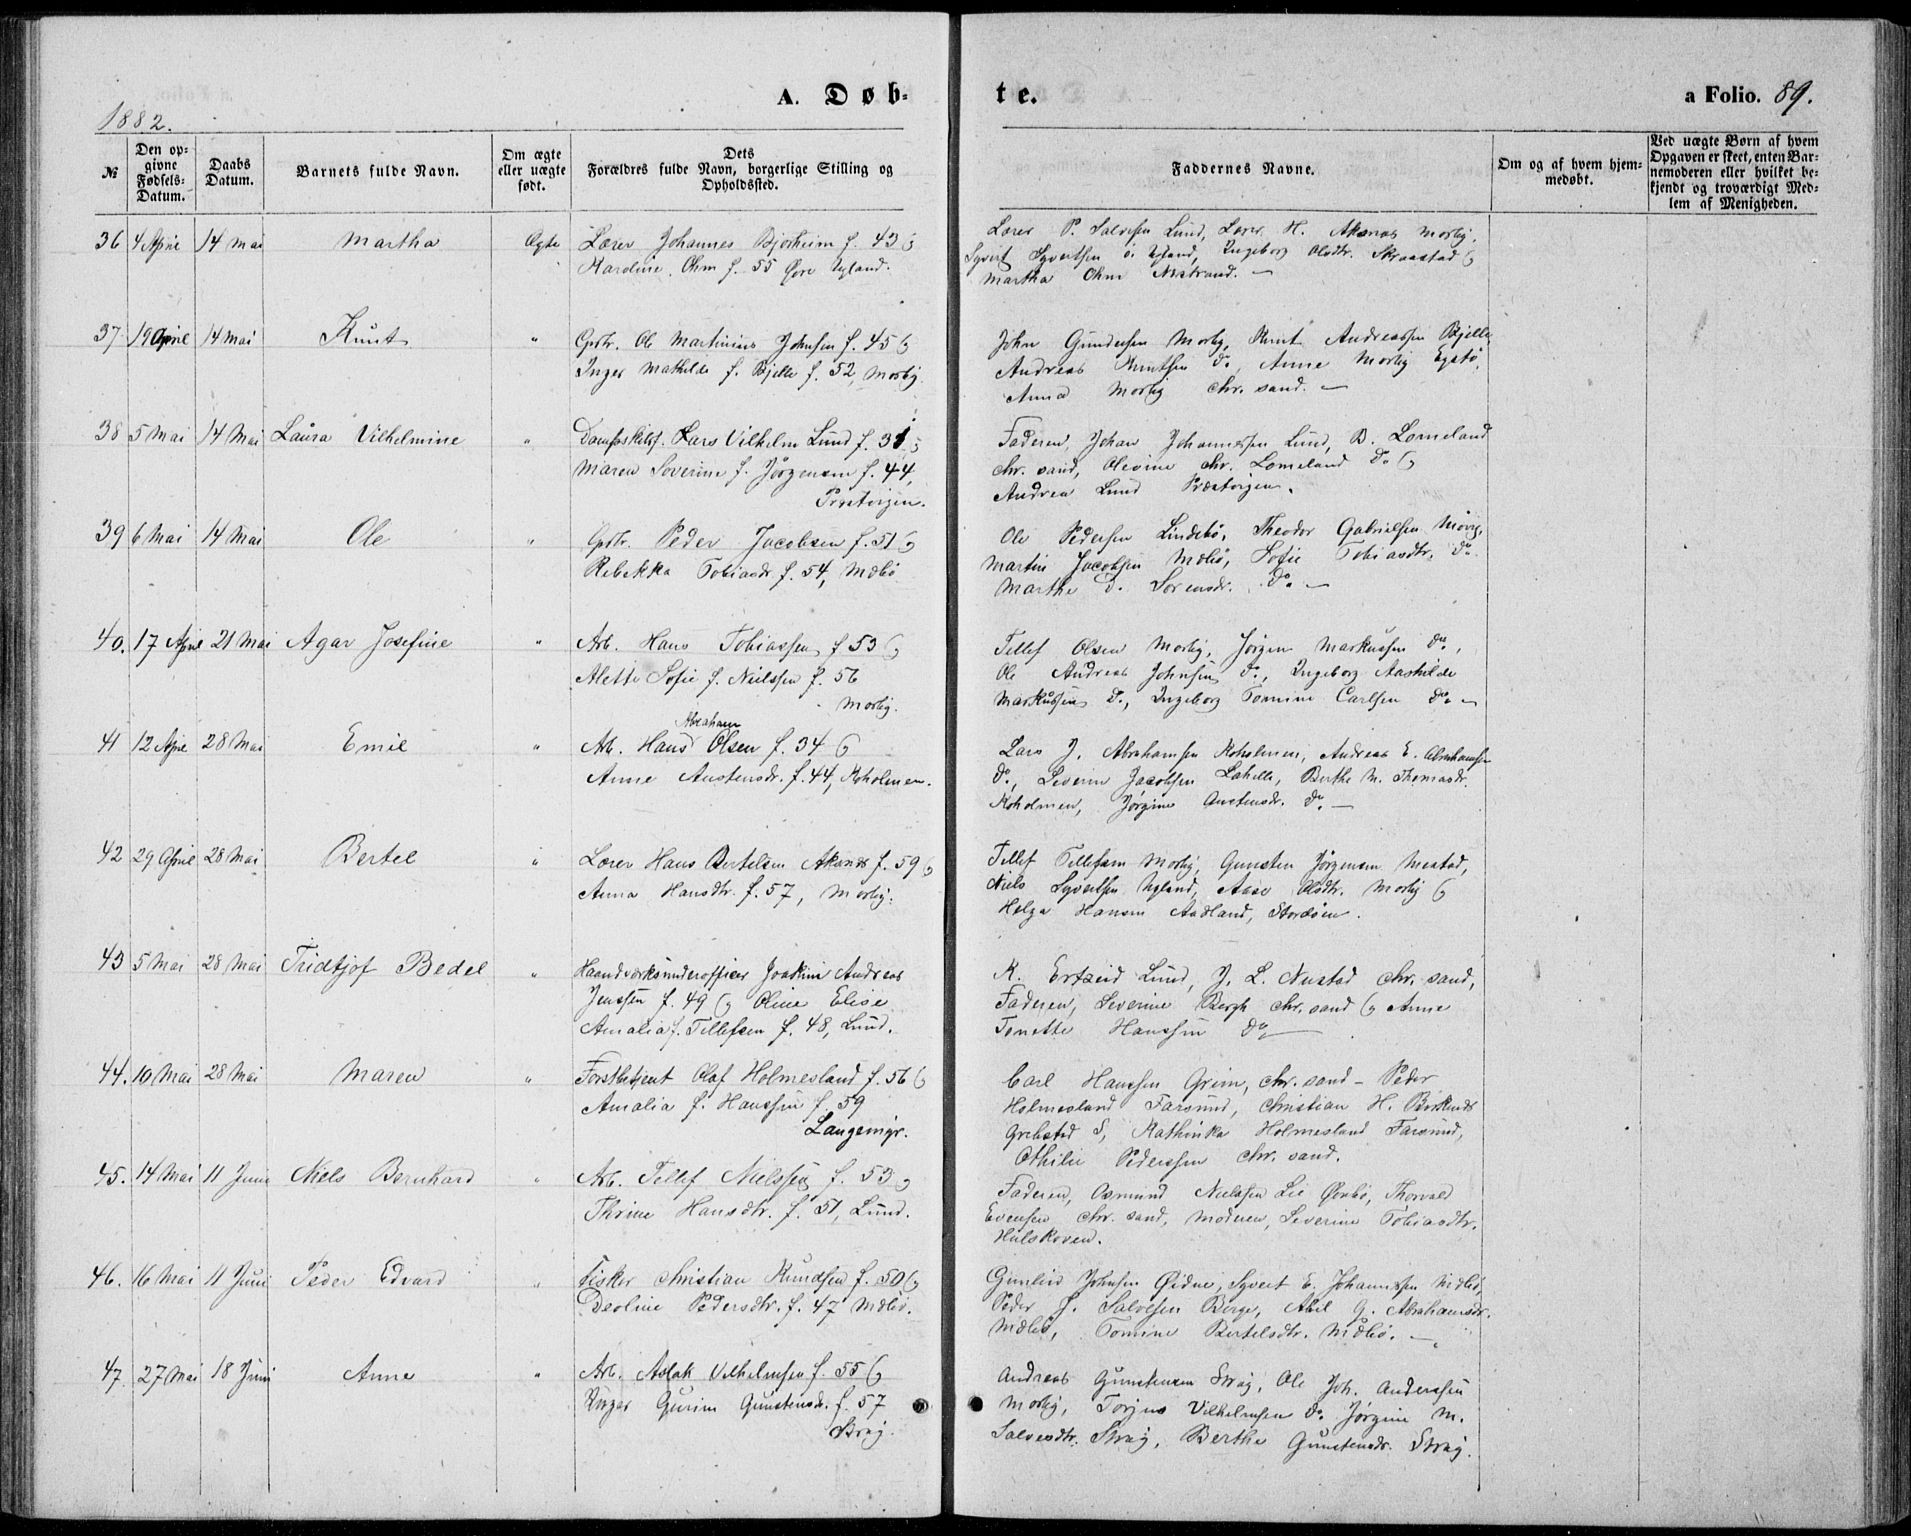 A. Døb-
te.
a Folio. 89.
1882.
№
Den op-
givne
Fødsels-
Datum.
Daabs
Datum.
Barnets fulde Navn.
Om ægte
eller uægte
født.
Dets
Forældres fulde Navn, borgerlige Stilling og
Opholdssted.
Faddernes Navne.
Om og af hvem hjem-
medøbt.
Ved uægte Børn af hvem
Opgaven er skeet, enten Bar-
nemoderen eller hvilket be-
kjendt og troværdigt Med-
lem af Menigheden.
36 4 April 14 Mai Martha Ægte Lærer Johannes Bjorheim f. 43 og
Karoline Ohm f. 55 Øvre Ugland.
Lærer P. Salvesen Lund, Lærer H. Aknæs Mosby,
Syvert Syvertsen ø. Ugland, Ingeborg Olsdtr. Skraastad og
Martha Ohm
37 19 April 14 Mai Knut " Gpstr. Ole Martinius Johnsen f. 45 og
Inger Mathilde f. Bjelle f. 52, Mosby.
John Gundersen Mosby, Knut Andreassen Bjelle,
Andreas Knutsen do, Anne Mosby Egstø,
Anna Mosby Chr.sand. —
38 5 Mai 14 Mai Laura Vilhelmine " Dampskibsf. Lars Vilhelm Lund f. 31 og
Maren Severine f. Jørgensen f. 44,
Præstvigen.
Faderen, Johan Johannessen Lund, B. Lomeland
Chr.sand, Olevine Chr. Lomeland do og
Andrea Lund Præstvigen.
39 6 Mai 14 Mai Ole " Gpstr. Peder Jacobsen f. 51 og
Rebekka Tobiasdr. f. 54, Mæbø
Ole Pedersen Lindebø, Theodor Gabrielsen Møvig,
Martin Jacobsen Mæbø, Sofie Tobiasdtr. do
Marthe D. Sørensdr. do —
40. 17 April 21 Mai Agar Josefine " Arb. Hans Tobiassen f. 53 og
Alette Sofie f. Nielssen f. 56
Mosby.
Tellef Olsen Mosby, Jørgen Markussen do,
Ole Andreas Johnsen do, Ingeborg Aashilde
Markussen do, Ingeborg Tomine Carlsen do —
41 12 April 28 Mai Emil " Arb. Hans Abraham Olsen f. 34 og
Anne Austensdr. f. 44, Roholmen.
Lars J. Abrahamsen Roholmen, Andreas E. Abrahamsen
do, Severin Jacobsen Lahelle, Berthe M. Thomasdr.
Roholmen, Jørgine Austensdr. do —
42 29 April 28 Mai Bertel " Lærer Hans Bertelsen Aknes f. 59 og
Anna Hansdtr. f. 57, Mosby.
Tellef Tellefsen Mosby, Gunsten Jørgensen Mestad,
Niels Syvertsen Ugland, Aase Olsdtr. Mosby og
Helga Hansen Aadland, Stordøen.
43 5 Mai 28 Mai Fridtjof Bedel " Haandværksunderofficer Joakim Andreas
Jenssen f. 49 og Oline Elise
Amalia f. Tellefsen f. 48, Lund.
K. Ertzeid Lund, J. L. Nustad Chr.sand,
Faderen, Severine Bergh Chr.sand og Anne
Tonette Hanssen do —
44. 10 Mai 28 Mai Maren " Forstbetjent Olaf Holmesland f. 56 og
Amalia f. Hanssen f. 59
Langemyr.
Carl Hanssen Grim, Chr.sand – Peder
Holmesland Farsund, Christian H.
Grebstad S, Kathinka Holmesland Farsund,
Othilie Pederssen Chr.sand.
45. 14 Mai 11 Juni Niels Bernhard " Arb. Tellef Nielssen f. 53 og
Thrine Hansdtr. f. 51, Lund.
Faderen, Osmund Nielssen Lie Øvrebø, Thorvald
Evensen Chr.sand, Moderen, Severine Tobiasdtr.
Hulskoven.
46. 16 Mai 11 Juni Peder Edvard " Fisker Christian Knudsen f. 50 og
Deoline Pedersdtr. f. 47 Mæbø.
Gunluv Johnsen Øidne, Syvert E. Johanssen Mæbø,
Peder J. Salvesen Berge, Abel G. Abrahamsdr.
Mæbø, Tomine Bertelsdtr. Mæbø. —
47. 27 Mai 18 Juni Anne " Arb. Aslak Vilhelmsen f. 55 og
Inger Gurine Gunstensdr. f. 57
Strag.
Andreas Gunstensen Strag, Ole Joh. Anderssen
Mosby, Torjus Vilhelmsen do, Jørgine M.
Salvesdtr. Strag, Berthe Gunstensdr. Strag.